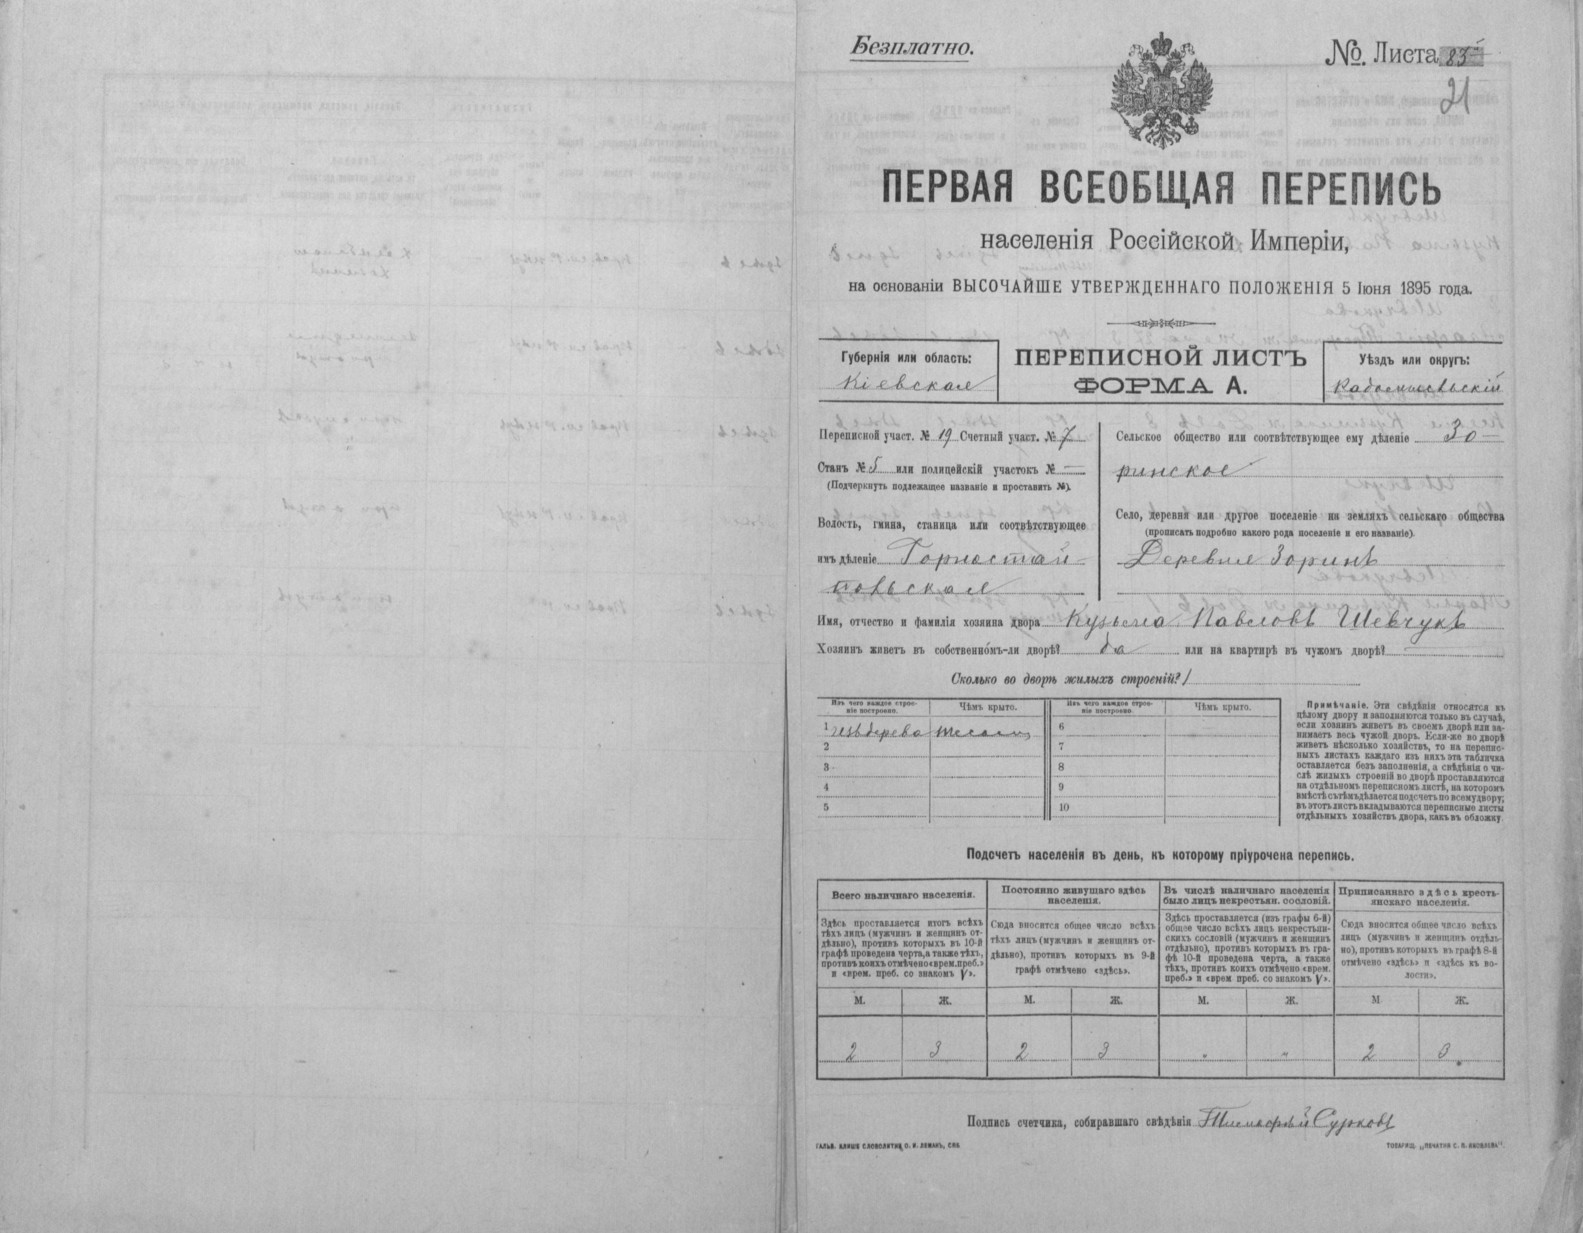 Безплатно.
№. Листа 83
21
ПЕРВАЯ ВСЕОБЩАЯ ПЕРЕПИСЬ
населенія Россійской Имперіи,
на основаніи ВЫСОЧАЙШЕ УТВЕРЖДЕННАГО ПОЛОЖЕНІЯ 5 Іюня 1895 года.
Губернія или область:
Кіевская
ПЕРЕПИСНОЙ ЛИСТЪ
ФОРМА А.
Уѣздъ или округъ:
Радомысльскій
Переписной участ. № 19 Счетный участ. № 7
Станъ № 5 или полицейскій участокъ № —
(Подчеркнуть подлежащее названіе и проставить №).
Волость, гмина, станица или соотвѣтствующее
имъ дѣленіе Горностай-
польская
Сельское общество или соотвѣтствующее ему дѣленіе Зо-
ринское
Село, деревня или другое поселеніе на земляхъ сельскаго общества
(прописать подробно какого рода поселеніе и его названіе).
Деревня Зоринъ
Имя, отчество и фамилія хозяина двора Кузьма Павловъ Шевчукъ
Хозяинъ живетъ въ собственномъ-ли дворѣ? да или на квартирѣ въ чужомъ дворѣ? —
Сколько во дворѣ жилыхъ строеній? 1
Изъ чего каждое строе-
ніе построено.
Чѣмъ крыто.
Изъ чего каждое строе-
ніе построено.
Чѣмъ крыто.
1 изъ дерева
6
2
7
3
8
4
9
5
10
Примѣчаніе. Эти свѣдѣнія относятся къ
цѣлому двору и заполняются только въ случаѣ,
если хозяинъ живетъ въ своемъ дворѣ или за-
нимаетъ весь чужой дворъ. Если-же во дворѣ
живетъ нѣсколько хозяйствъ, то на перепис-
ныхъ листахъ каждаго изъ нихъ эта табличка
оставляется безъ заполненія, а свѣдѣнія о чи-
слѣ жилыхъ строеній во дворѣ проставляются
на отдѣльномъ переписномъ листѣ, на которомъ
вмѣстѣ съ тѣмъ дѣлается подсчетъ по всему двору;
въ этотъ листъ вкладываются переписные листы
отдѣльныхъ хозяйствъ двора, какъ въ обложку.
Подсчетъ населенія въ день, къ которому пріурочена перепись.
Всего наличнаго населенія.
Постоянно живущаго здѣсь
населенія.
Въ числѣ наличнаго населенія
было лицъ некрестьян. сословій.
Приписаннаго здѣсь кресть-
янскаго населенія.
Здѣсь проставляется итогъ всѣхъ
тѣхъ лицъ (мужчинъ и женщинъ от-
дѣльно), противъ которыхъ въ 10-й
графѣ проведена черта, а также тѣхъ,
противъ коихъ отмѣчено «врем. преб.»
и «врем. преб. со знакомъ V».
Сюда вносится общее число всѣхъ
тѣхъ лицъ (мужчинъ и женщинъ от-
дѣльно), противъ которыхъ въ 9-й
графѣ отмѣчено «здѣсь».
Здѣсь проставляется (изъ графы 6-й)
общее число всѣхъ лицъ некрестьян-
скихъ сословій (мужчинъ и женщинъ
отдѣльно), противъ которыхъ въ гра-
фѣ 10-й проведена черта, а также
тѣхъ, противъ коихъ отмѣчено «врем.
преб.» и «врем. преб. со знакомъ V».
Сюда вносится общее число всѣхъ
лицъ (мужчинъ и женщинъ отдѣль-
но), противъ которыхъ въ графѣ 8-й
отмѣчено «здѣсь» и «здѣсь къ во-
лости».
М. Ж. М. Ж. М. Ж. М. Ж.
2 3 2 3 „ „ 2 3
Подпись счетчика, собиравшаго свѣдѣнія Тимофѣй Сурковъ
ГАЛЬВ. КЛИШЕ СЛОВОЛИТНИ О. И. ЛЕМАНЪ, СПБ.
ТОВАРИЩ. „ПЕЧАТНЯ С. П. ЯКОВЛЕВА".